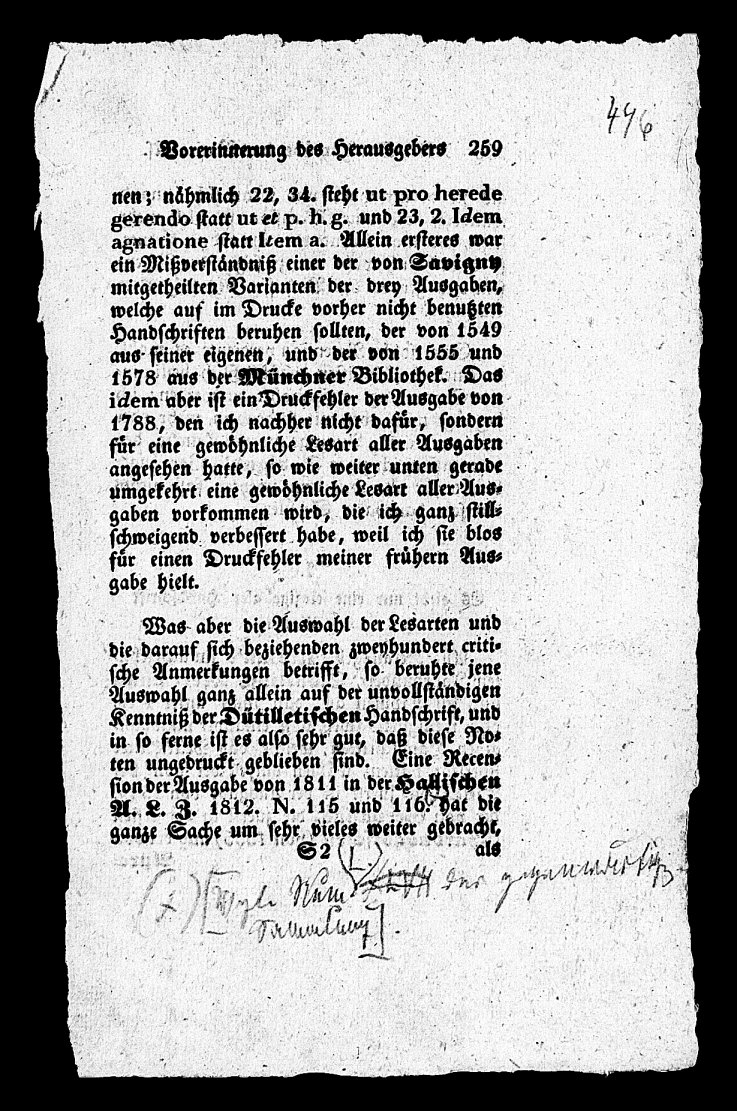 446
Vorerinnerung des Herausgebers 259
nen; nähmlich 22, 34. steht ut pro herede
gerendo statt ut et p. h. g. und 23, 2. Idem
agnatione statt Item a. Allein ersteres war
ein Mißverständniß einer der von Savigny
mitgetheilten Varianten der drey Ausgaben,
welche auf im Drucke vorher nicht benutzten
Handschriften beruhen sollten, der von 1549
aus seiner eigenen, und der von 1555 und
1578 aus der Münchner Bibliothek. Das
idem aber ist ein Druckfehler der Ausgabe von
1788, den ich nachher nicht dafür, sondern
für eine gewöhnliche Lesart aller Ausgaben
angesehen hatte, so wie weiter unten gerade
umgekehrt eine gewöhnliche Lesart aller Aus-
gaben vorkommen wird, die ich ganz still-
schweigend verbessert habe, weil ich sie blos
für einen Druckfehler meiner frühern Aus-
gabe hielt.
Was aber die Auswahl der Lesarten und
die darauf sich beziehenden zweyhundert criti-
sche Anmerkungen betrifft, so beruhte jene
Auswahl ganz allein auf der unvollständigen
Kenntniß der Dütilletischen Handschrift, und
in so ferne ist es also sehr gut, daß diese No-
ten ungedruckt geblieben sind. Eine Recen-
sion der Ausgabe von 1811 in der Hallischen
A. L. Z. 1812. N. 115 und 116. hat die
ganze Sache um sehr vieles weiter gebracht,
S2 als
(L.)
[Vgl. Num der gegenwärtigen
Sammlung].